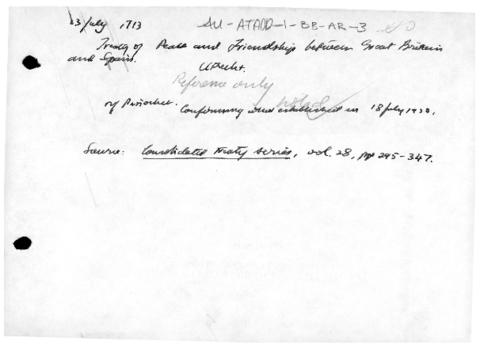 13 July, 1713 AU-ATADD-1-BB-AR-3
Treaty of Peace and Friendship between Great Britain
and Spain.
Utrecht.
Reference only
Confirming and established in 18 July 1930.
Source: Consolidated Treaty Series, vol. 28, pp 295-347.